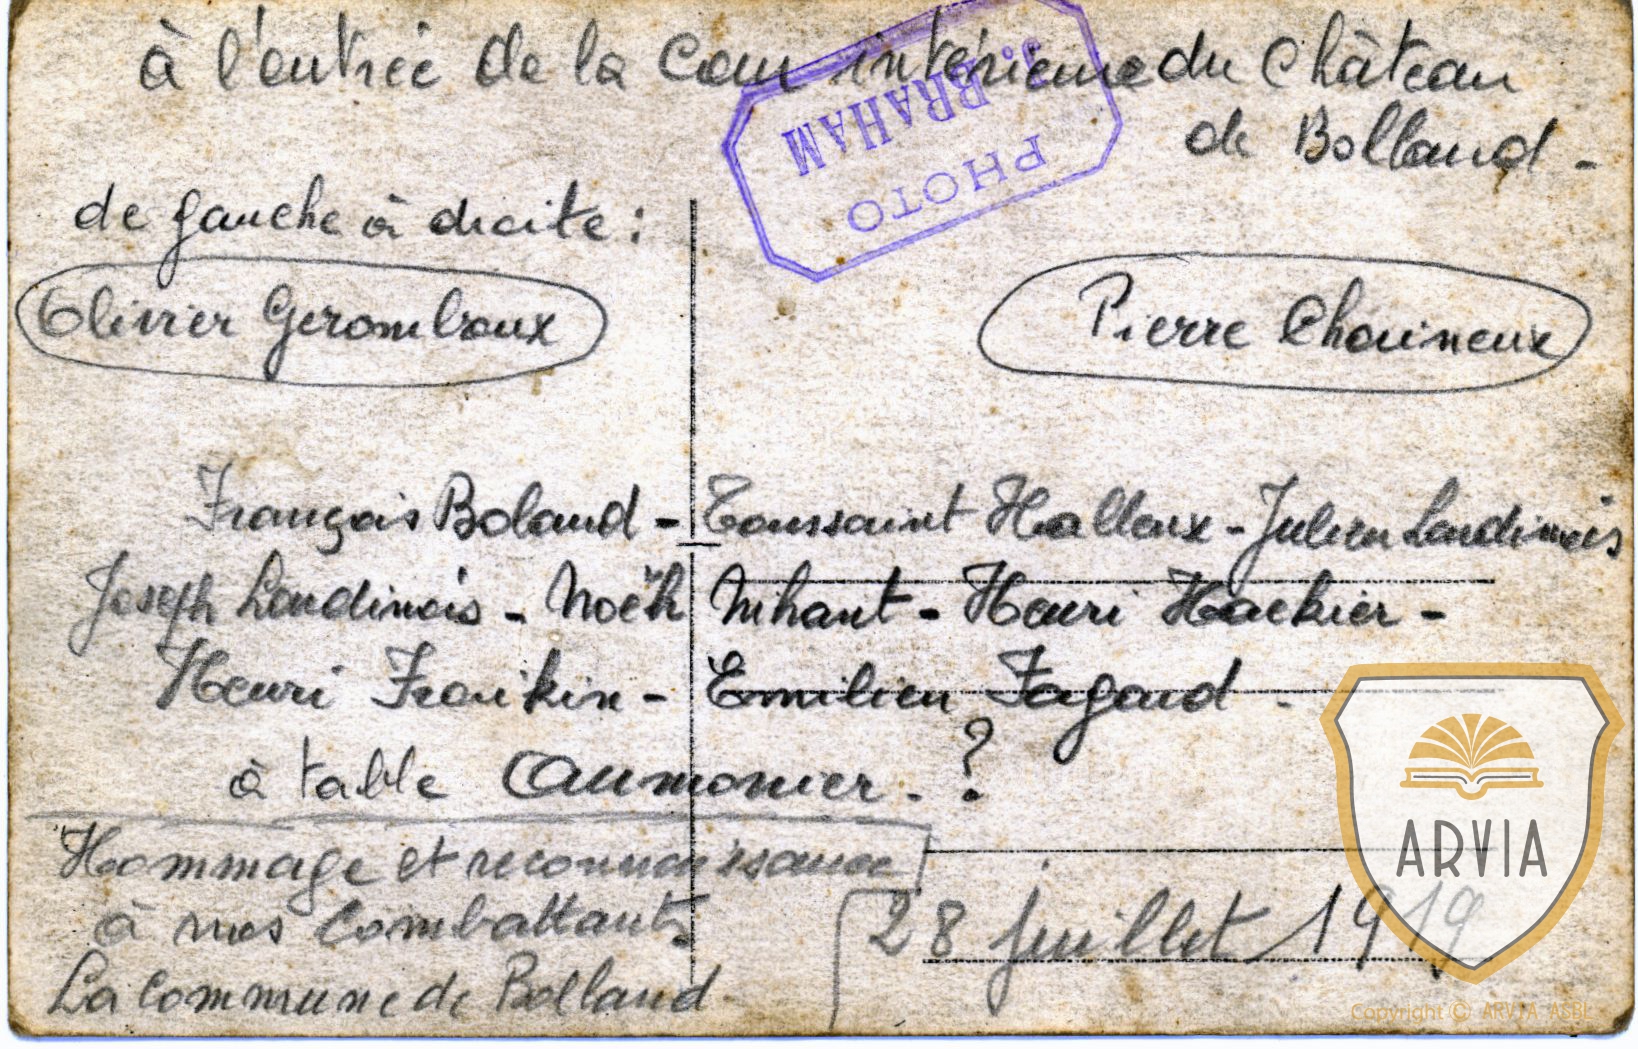 à l'entrée de la Cour intérieure du Château
de Bolland -
PHOTO
J. BRAHAM
de gauche à droite :
Olivier Geromboux
Pierre Chaineux
François Bolaud - Toussaint Halleux - Julien Laudinois
Joseph Laudinois - Noëh Nihant - Henri Hackier -
Henri Fraikin - Emilien Fagard -
à table Aumonier. ?
Hommage et reconnaissance
à nos Combattants
La Commune de Bolland -
28 juillet 1919
ARVIA
Copyright © ARVIA ASBL